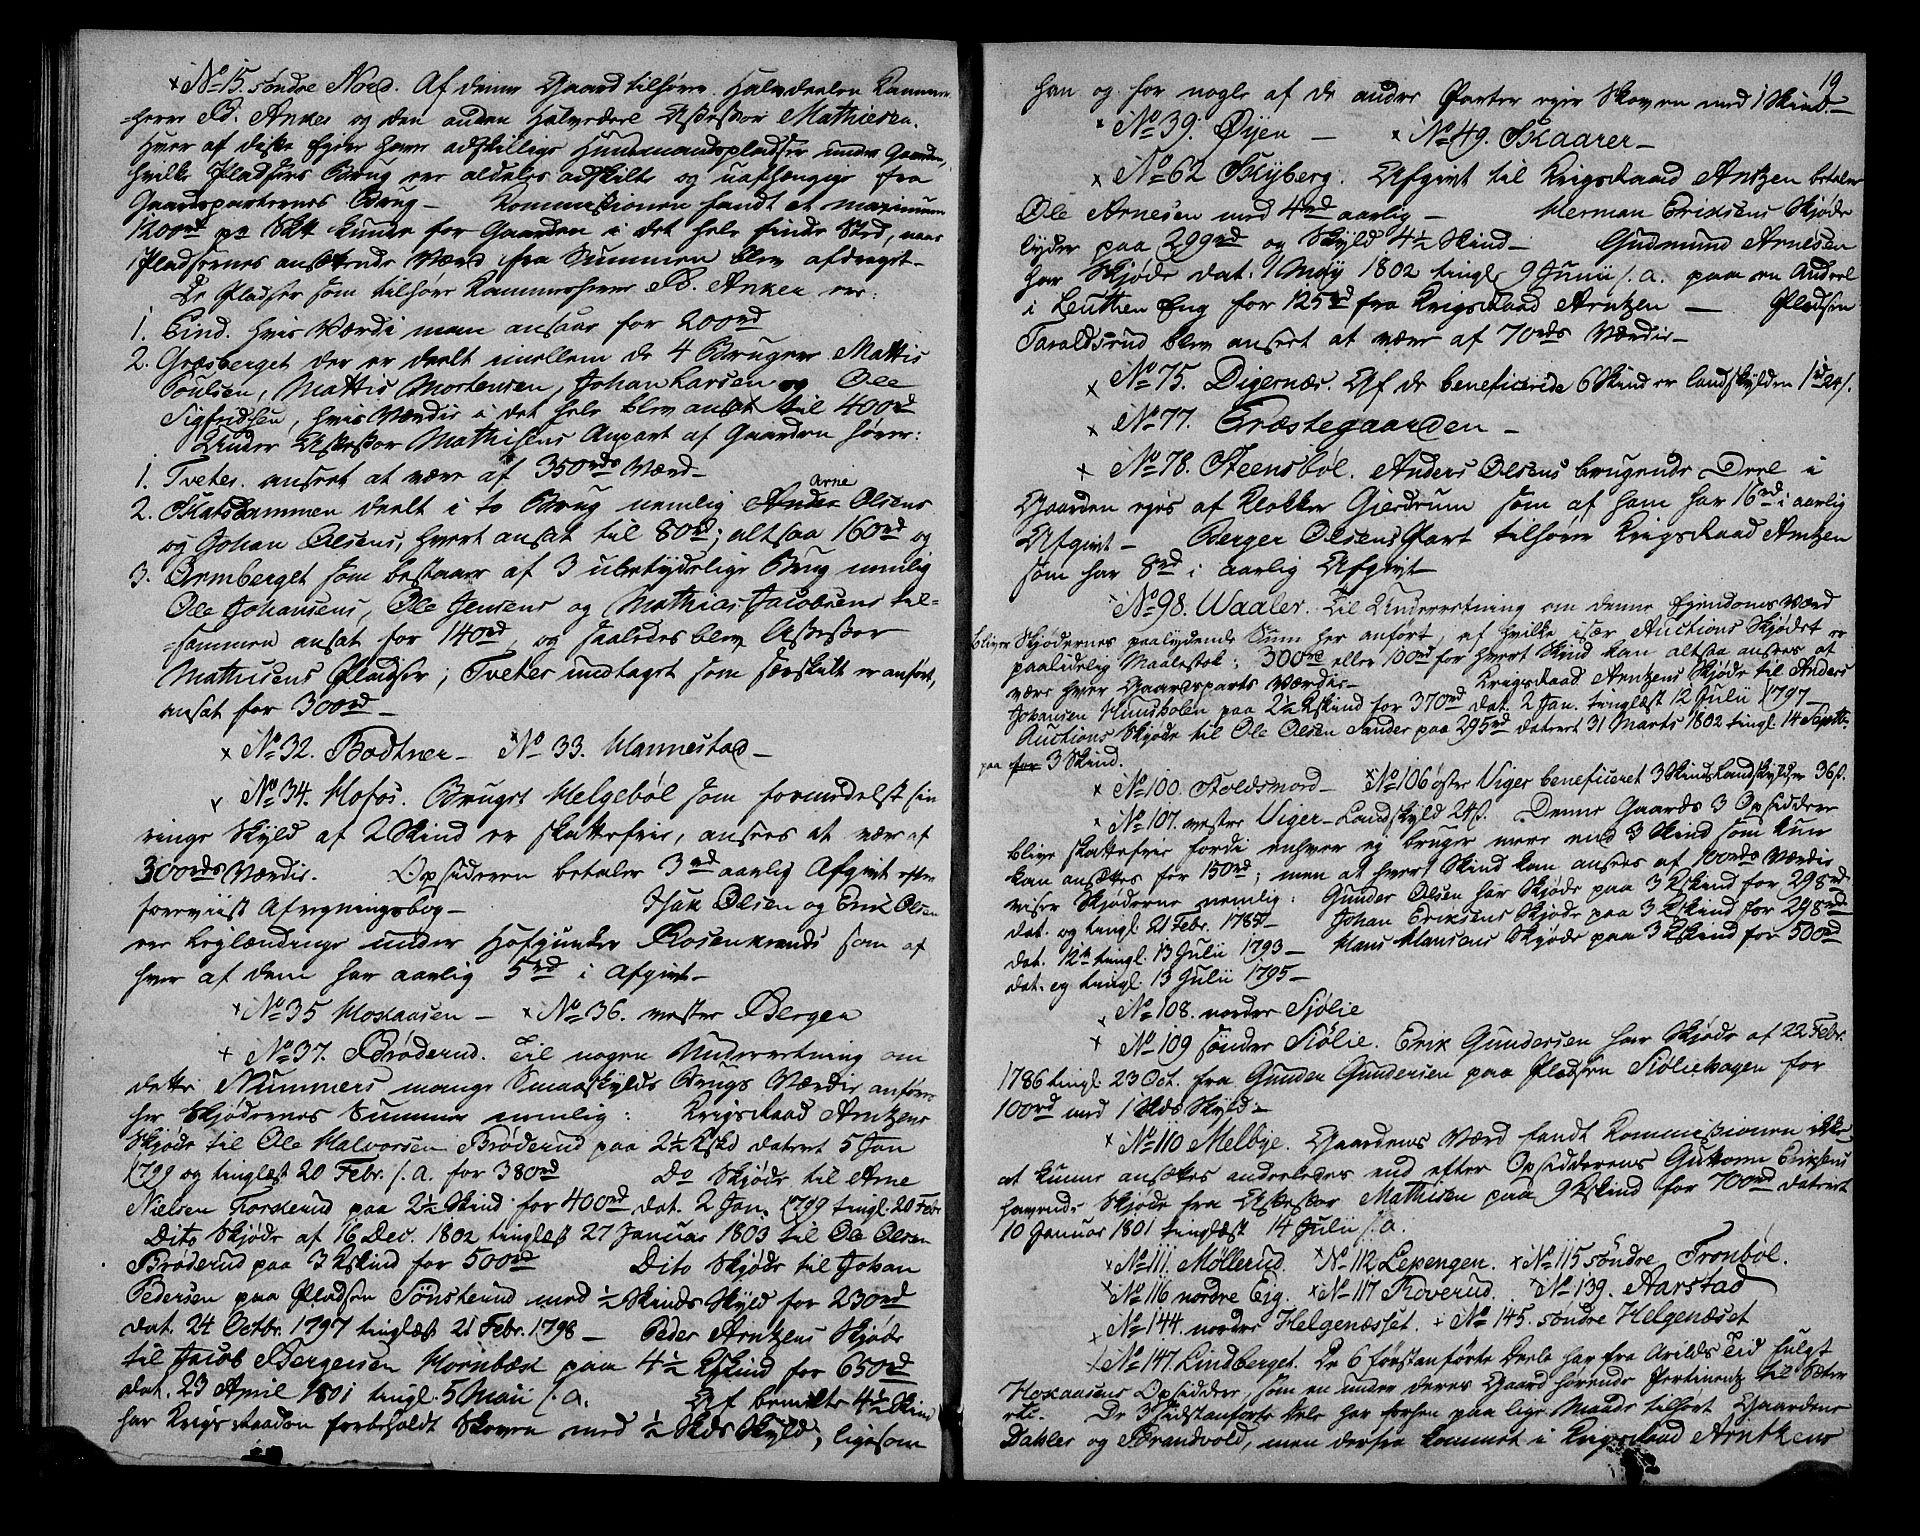 × No 15. söndre Nord. Af denne Gaard tilhører Halvdeelen Kammer-
=herre B. Anker og den anden Halvdeel Assessor Mathiesen.
Hver af disse Ejere have adskillige Huusmandspladser under Gaarden,
hvilke Pladsers Brug ere aldeles adskilte og uafhængige fra
Gaardparternes Brug – Kommissionen fandt et maximum
1200rd pr Skd kunde for Gaarden i det hele finde Sted, naar
Pladsernes ansættende Værd fra Summen blev afdraget –
De Pladser som tilhøre Kammerherre B. Anker ere:
1. Eind. hvis Værdi man ansaae for 200rd
2. Græsberget der er deelt imellem de 4 Brugere Mattis
Poulsen, Mattis Mortensen, Johan Larsen og Ole
Sigfridsen, hvis Værdie i det hele blev ansat til 400rd
Under Assessor Mathisens Anpart af Gaarden hører:
1. Tveter. anseet at være af 350rds Værd –
2. Skatskammen deelt i to Brug nemlig Arne Olsens
og Johan Olsens, hvert ansat til 80rd; altsaa 160rd og
3. Ormberget som bestaaer af 3 ubetydelige Brug nemlig
Ole Johansens, Ole Jensens og Mathias Jacobsens til-
=sammen ansat for 140rd, og saaledes blev Assessor
Mathisens Pladser, Tveter undtaget som særskilt er anført,
ansat for 300rd –
× No 32. Bodtner – × No 33. Mannestad –
× No 34. Hofos. Bruget Helgebøl som formedelst sin
ringe Skyld af 2 Skind er skattefrie, ansees at være af
300rds Værdie. Opsidderen betaler 3rd aarlig Afgivt efter
foreviist Afregningsbog – Isak Olsen og Erik Olsen
ere Leglændinge under Hofjunker Rosenkrands som af
hver af dem har aarlig 5rd i Afgivt –
× No 35 Hokaasen – × No 36. vestre Bergen
+ No 37. Brøderud. Til nogen Underretning om
dette Nummers mange Smaaskylds Brugs Værdie anføres
her Skjødernes Summer nemlig: Krigsraad Arntzens
Skjøde til Ole Halvorsen Brøderud paa 2½ Skd dateret 5 Jan
1799 og tinglæst 20 Febr. s.a. for 380rd Do Skjøde til Arne
Nielsen Forkerud paa 2½ Skind for 400rd dat. 2 Jan. 1799 tingl. 20 Febr
Dito Skjøde af 16 Dec. 1802 tinglæst 27 Januar 1803 til Ole Olsen
Brøderud paa 3 Skind for 500rd Dito Skjøde til Johan
Pedersen paa Pladsen Tønskerud med ½ Skinds Skyld for 230rd
dat. 24 Octbr. 1797 tinglæst 21 Febr. 1798 – Peder Arntzens Skjøde
til Jacob Bergersen Hornbæk paa 4½ Skind for 650rd
dat. 23 April 1801 tingl. 5 Maii s.a. Af benævnte 4½ Skind
har Krigsraaden forbeholdt Skoven med ½ Skds Skyld, ligesom
19
han og for nogle af de andre Parter ejer Skoven med 1 Skind. –
× No 39. Øyen – × No 49. Skaarer –
× No 62 Skyberg. Afgivt til Krigsraad Arntzen betaler
Ole Arnesen med 4rd aarlig – Herman Eriksens Skjøde
lyder paa 299rd og Skyld 4½ Skind – Gudmund Arnesen
har Skjøde dat. 1 May 1802 tingl. 9 Junii s.a. paa en Andeel
i Leuthen Eng for 125rd fra Krigsraad Arntzen – Pladsen
Taraldsrud blev anseet at være af 70rds Værdie –
× No 75. Digernæs. Af de beneficerede 6 Skind er landskylden 1rd 24s.
× No 77. Præstegaarden –
× No 78. Steensbøl. Anders Olsens brugende Deel i
Gaarden ejes af Klokker Gjerdrum som af ham har 16rd i aarlig
Afgivt – Berger Olsens Part tilhører Krigsraad Arntzen
som har 8rd i aarlig Afgivt –
× No 98. Waaler. Til Underretning om denne Ejendoms Værd
bliver Skjødernes paalydende Sum her anført, af hvilke især Auctions Skjødet er
paalidelig Maalestok: 300rd eller 100rd for hvert Skind kan altsaa ansees at
være hver Gaardsparts Værdie – Krigsraad Arntzens Skjøde til Anders
Johansen Huusholen paa 2½ Skind for 370rd dat. 2 Jan. tinglæst 12 Julii 1797 –
Auctions Skjøde til Ole Olsen Sander paa 295rd dateret 31 Marts 1802 tingl. 14 Septbr.
paa for 3 Skind.
× No 100. Stoldsmord – × No 106 östre Viger beneficeret 3 Skinds Landskyld er 36s.
× No 107. vestre Viger – Landskyld 24s. Denne Gaards 3 Opsiddere
blive skattefrie fordi enhver ej bruger mere end 3 Skind som kun
kan ansættes for 150rd; men at hvert Skind kan ansees af 100rds Værdie
viser Skjøderne nemlig: Gunder Olsen har Skjøde paa 3 Skind for 298rd
dat. og tingl. 21 Febr. 1787 – Johan Eriksens Skjøde paa 3 Skind for 298rd
dat. 12 tingl. 13 Julii 1793 – Hans Hansens Skjøde paa 3 Skind for 500rd
dat. og tingl. 13 Julii 1795 –
× No 108. nordre Sjølie
× No 109 söndre Siølie. Erik Gundersen har Skjøde af 22 Febr.
1786 tingl. 23 Oct. fra Gunder Gundersen paa Pladsen Siøliehagen for
100rd med 1 Skds Skyld –
× No 110 Melbye. Gaardens Værd fandt Kommissionen ikke
at kunne ansættes anderledes end efter Opsidderens Guttorm Eriksens
havende Skjøde fra Assessor Mathisen paa 9 Skind for 700rd dateret
10 Januar 1801 tinglæst 14 Julii s.a.
× No 111. Møllerud. × No 112 Lepengen. × No 115 söndre Tronbøl.
× No 116 nordre Eig. × No 117 Froverud. × No 139. Aarstad
× No 144. nordre Helgenæsset. + No 145. söndre Helgenæset
× No 147. Lindberget. De 6 førstanførte Dele har fra Arilds Tid fulgt
Hokaasens Opsiddere, som en under deres Gaard hørende Pertinentz til Sæter
etc. De 3 sidstanførte Dele har forhen paa lige Maade tilhørt Gaardene
Dahler og Strandvold, men derfra kommet i Krigsraad Arntzens